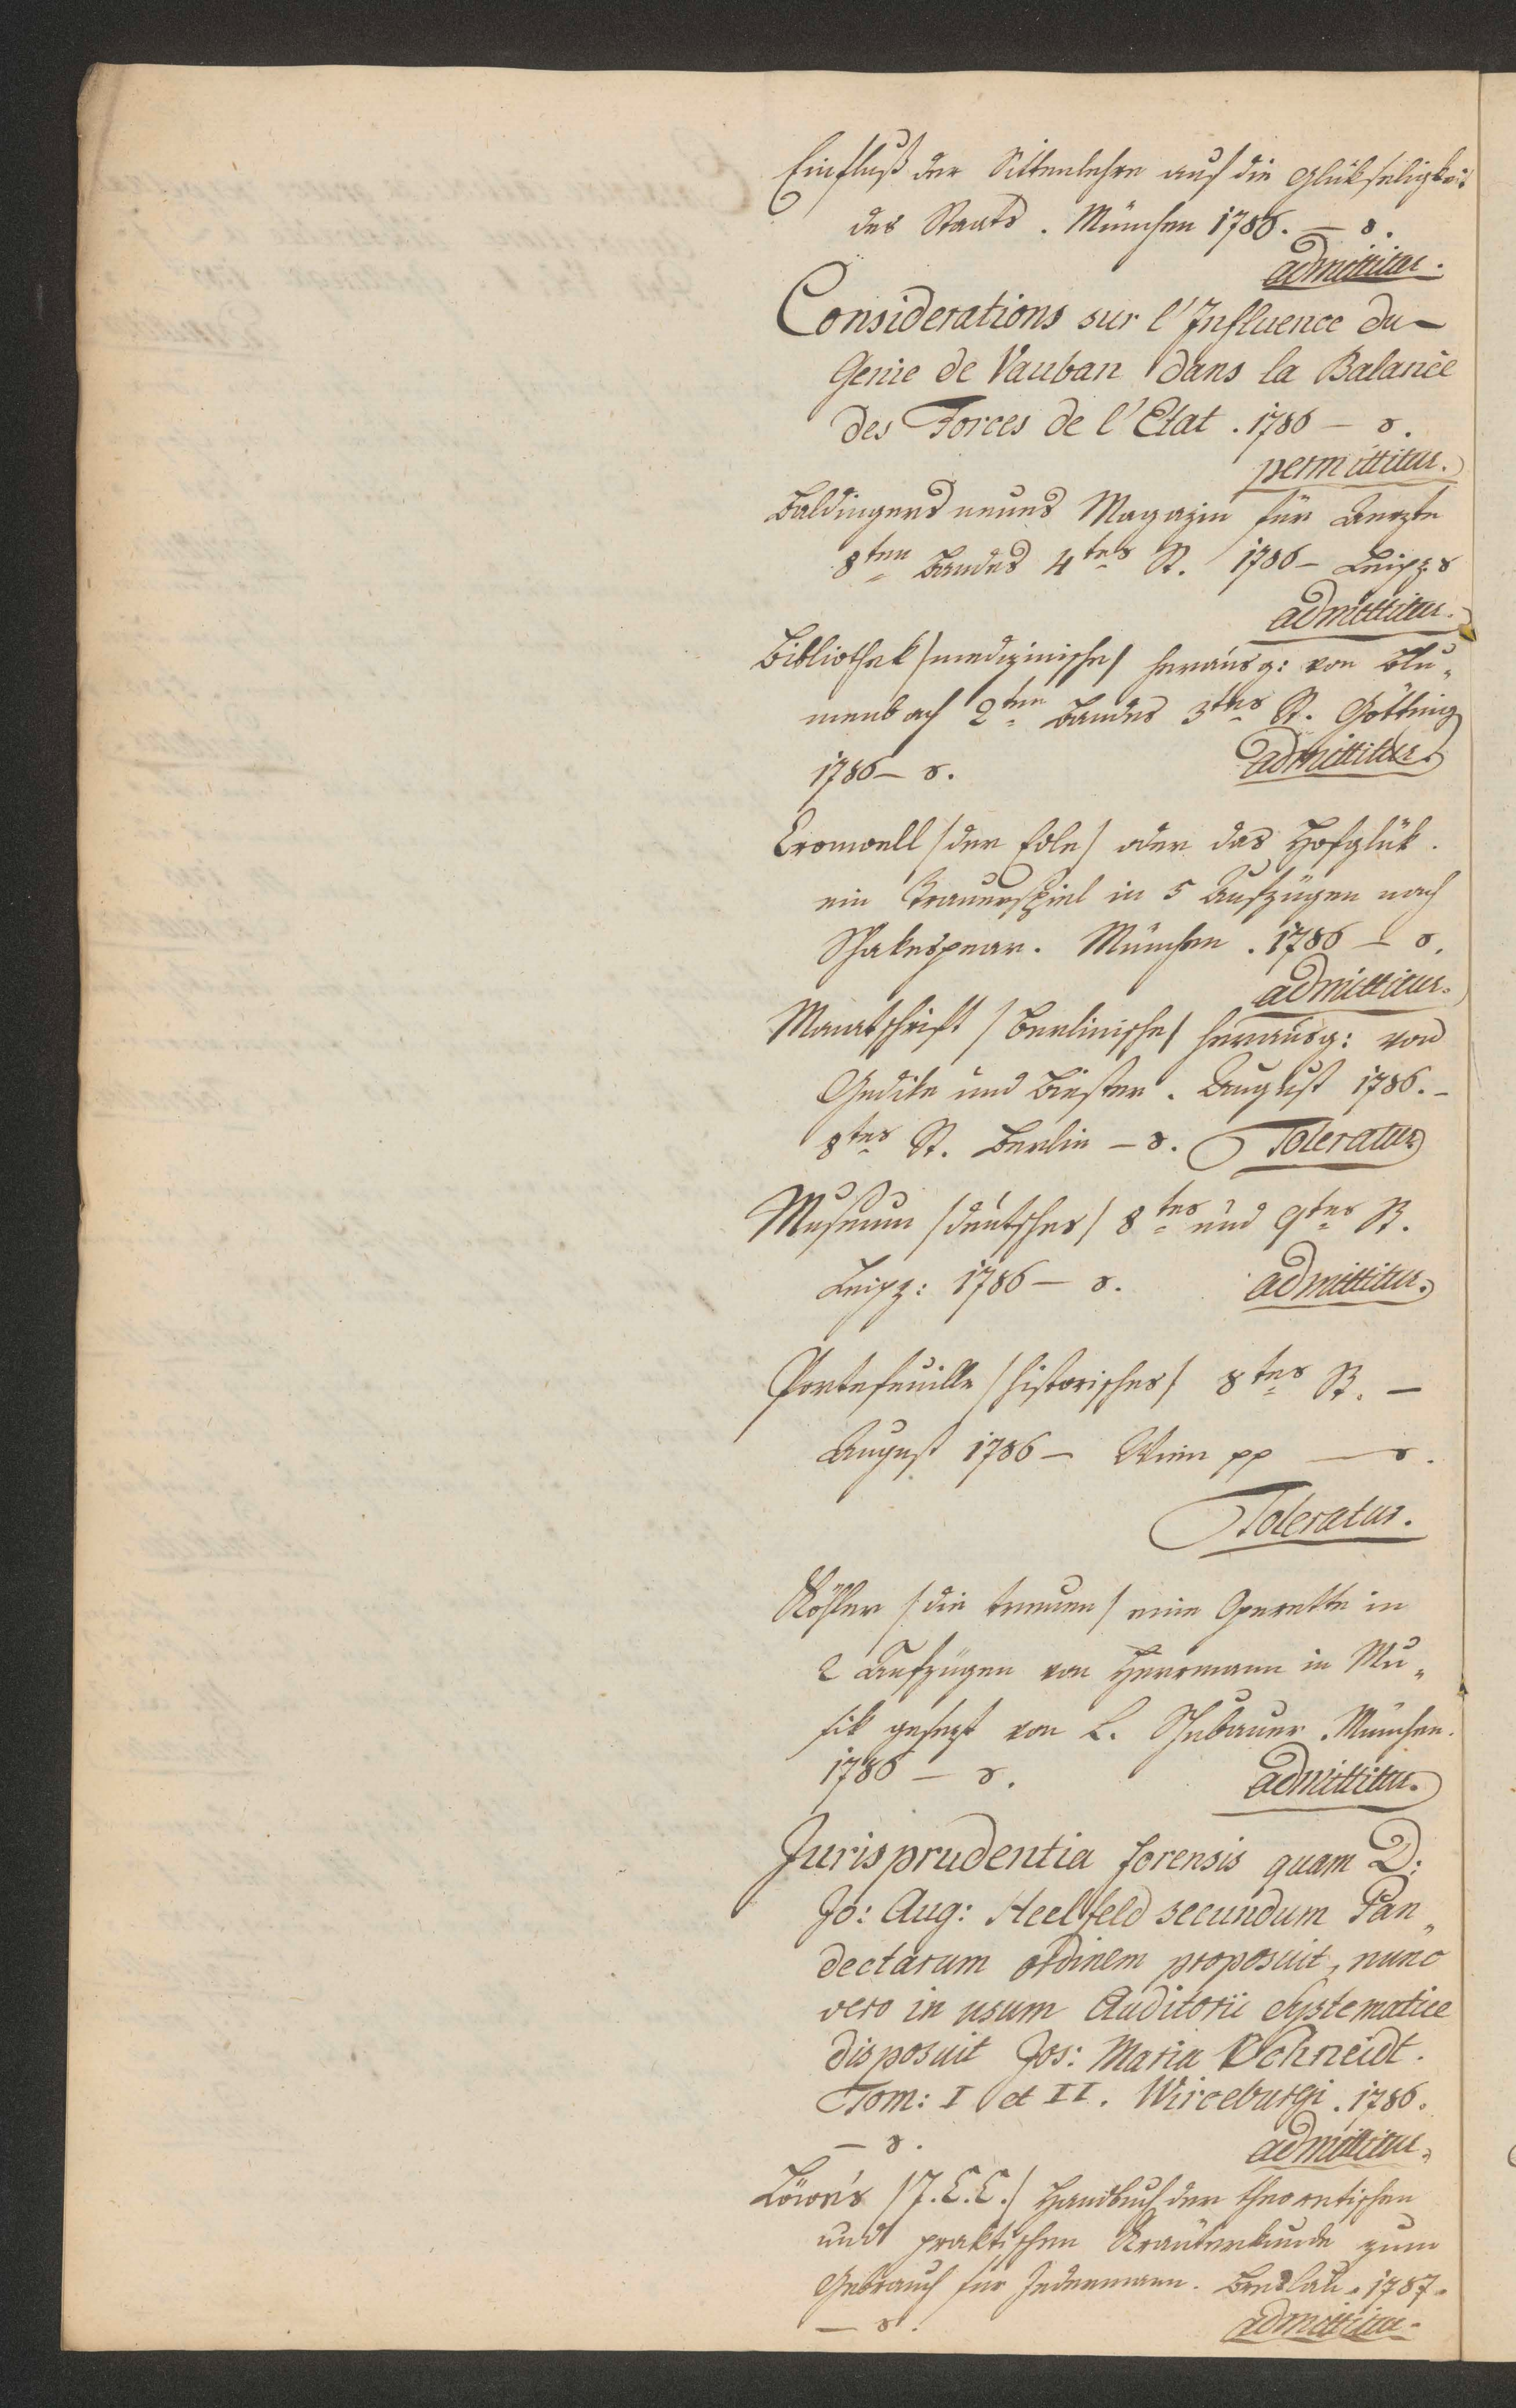 Einfluß der Sittenlehre auf die Glükseligkeit
des Staats. München 1786. — 8.
admittitur.
Considerations sur l'Influence du
Genie de Vauban dans la Balance
des Forces de l'Etat. 1786 — 8.
permittitur.
Baldingers neues Magazin für Aerzte
8ten Bandes 4tes St. 1786 — Leipz. 8
admittitur.
Bibliothek /medizinische/ herausg: von Blu„
menbach 2ten Bandes 3tes St. Götting
1786 — 8. admittitur.
Cromwell /der edle/ oder das Hofglük.
ein Trauerspiel in 5 Aufzügen nach
Schakespear. München. 1786 — 8.
admittitur.
Monatschrift /Berlinische/ herausg: von
Gedike und Biester. August 1786. —
8tes St. Berlin — 8. Toleratur
Museum /deutsches/ 8tes und 9tes St.
Leipz: 1786 — 8. admittitur.
Portefeuille /historisches/ 8tes St. —
August 1786 — Wien pp — 8.
Toleratur.
Köhler /die treuen/ eine Operette in
2 Aufzügen von Herrmann in Mu„
sik gesezt von L. Schubauer. München.
1786 — 8. admittitur.
Jurisprudentia forensis quam D:
Jo: Aug: Heelfeld secundum Pan„
dectarum ordinem proposuit, nunc
vero in usum Auditorii Systematice
disposuit Jos: Maria Schneidt.
Tom: I et II. Wirceburgi. 1786.
— 8. admittitur.
Löwe's /J.C.C./ Handbuch der theoretischen
und praktischen Kräuterkunde zum
Gebrauch für Jedermann. Breslau. 1787.
— 8. admittitur.